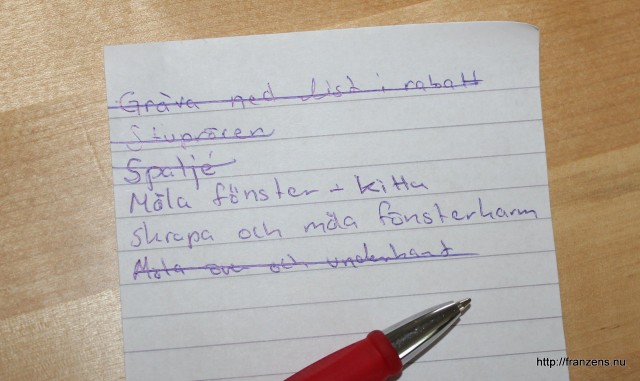 Gräva ned list i rabatt
Stuprören
Spaljé
Måla fönster + kitta
skrapa och måla fönsterkarm
Måla över och underkant
http://franzens.nu